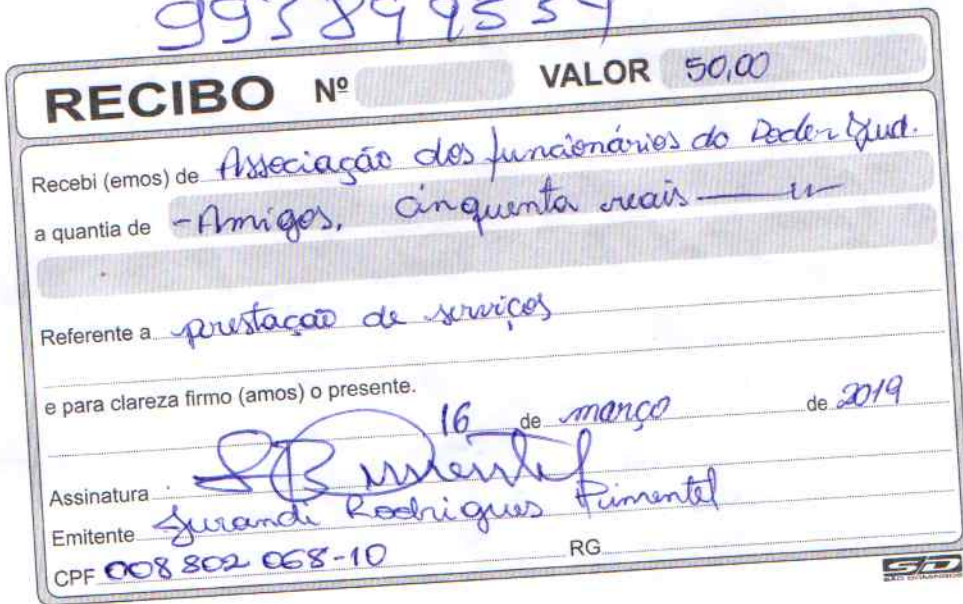 995899554
RECIBO Nº VALOR 50,00
Recebi (emos) de Associação dos funcionários do Poder Jud.
a quantia de - Amigos, cinquenta reais
Referente a prestação de serviços
e para clareza firmo (amos) o presente.
16 de março de 2019
Assinatura Pimentel
Emitente Jurandi Rodrigues Pimentel
CPF 008 802 068-10 RG
SD
SÃO DOMINGOS